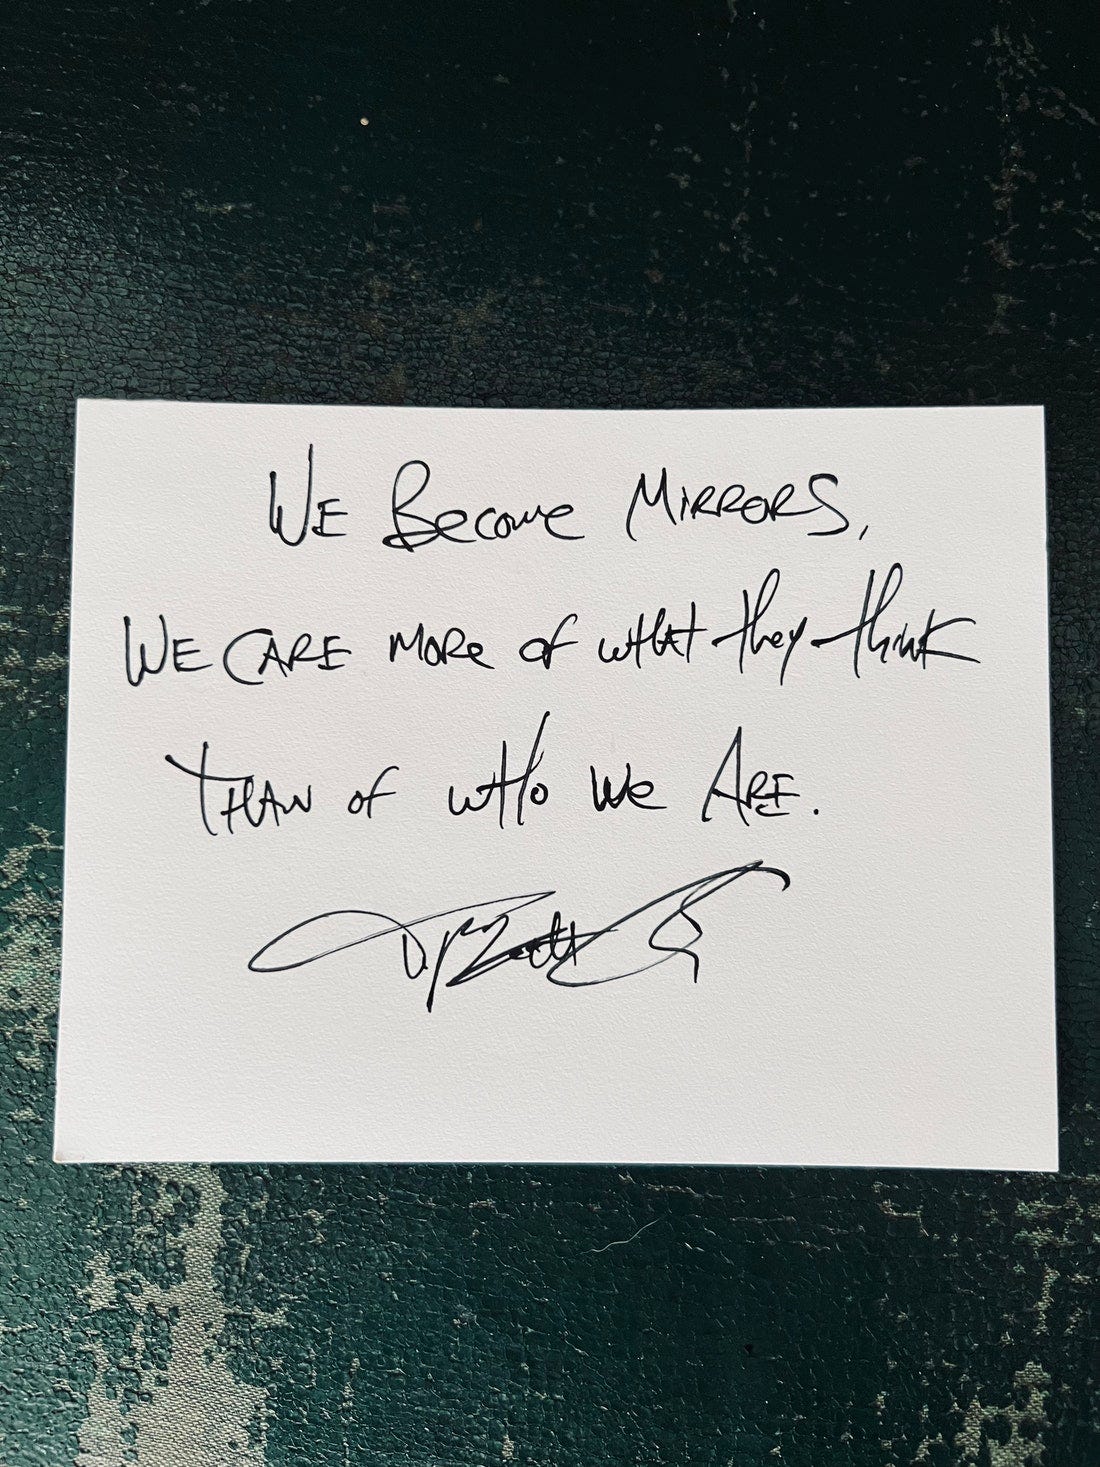 WE Become MIRRORS,
WE CARE MORE OF WHAT they think
THAN OF WHO We ARE.